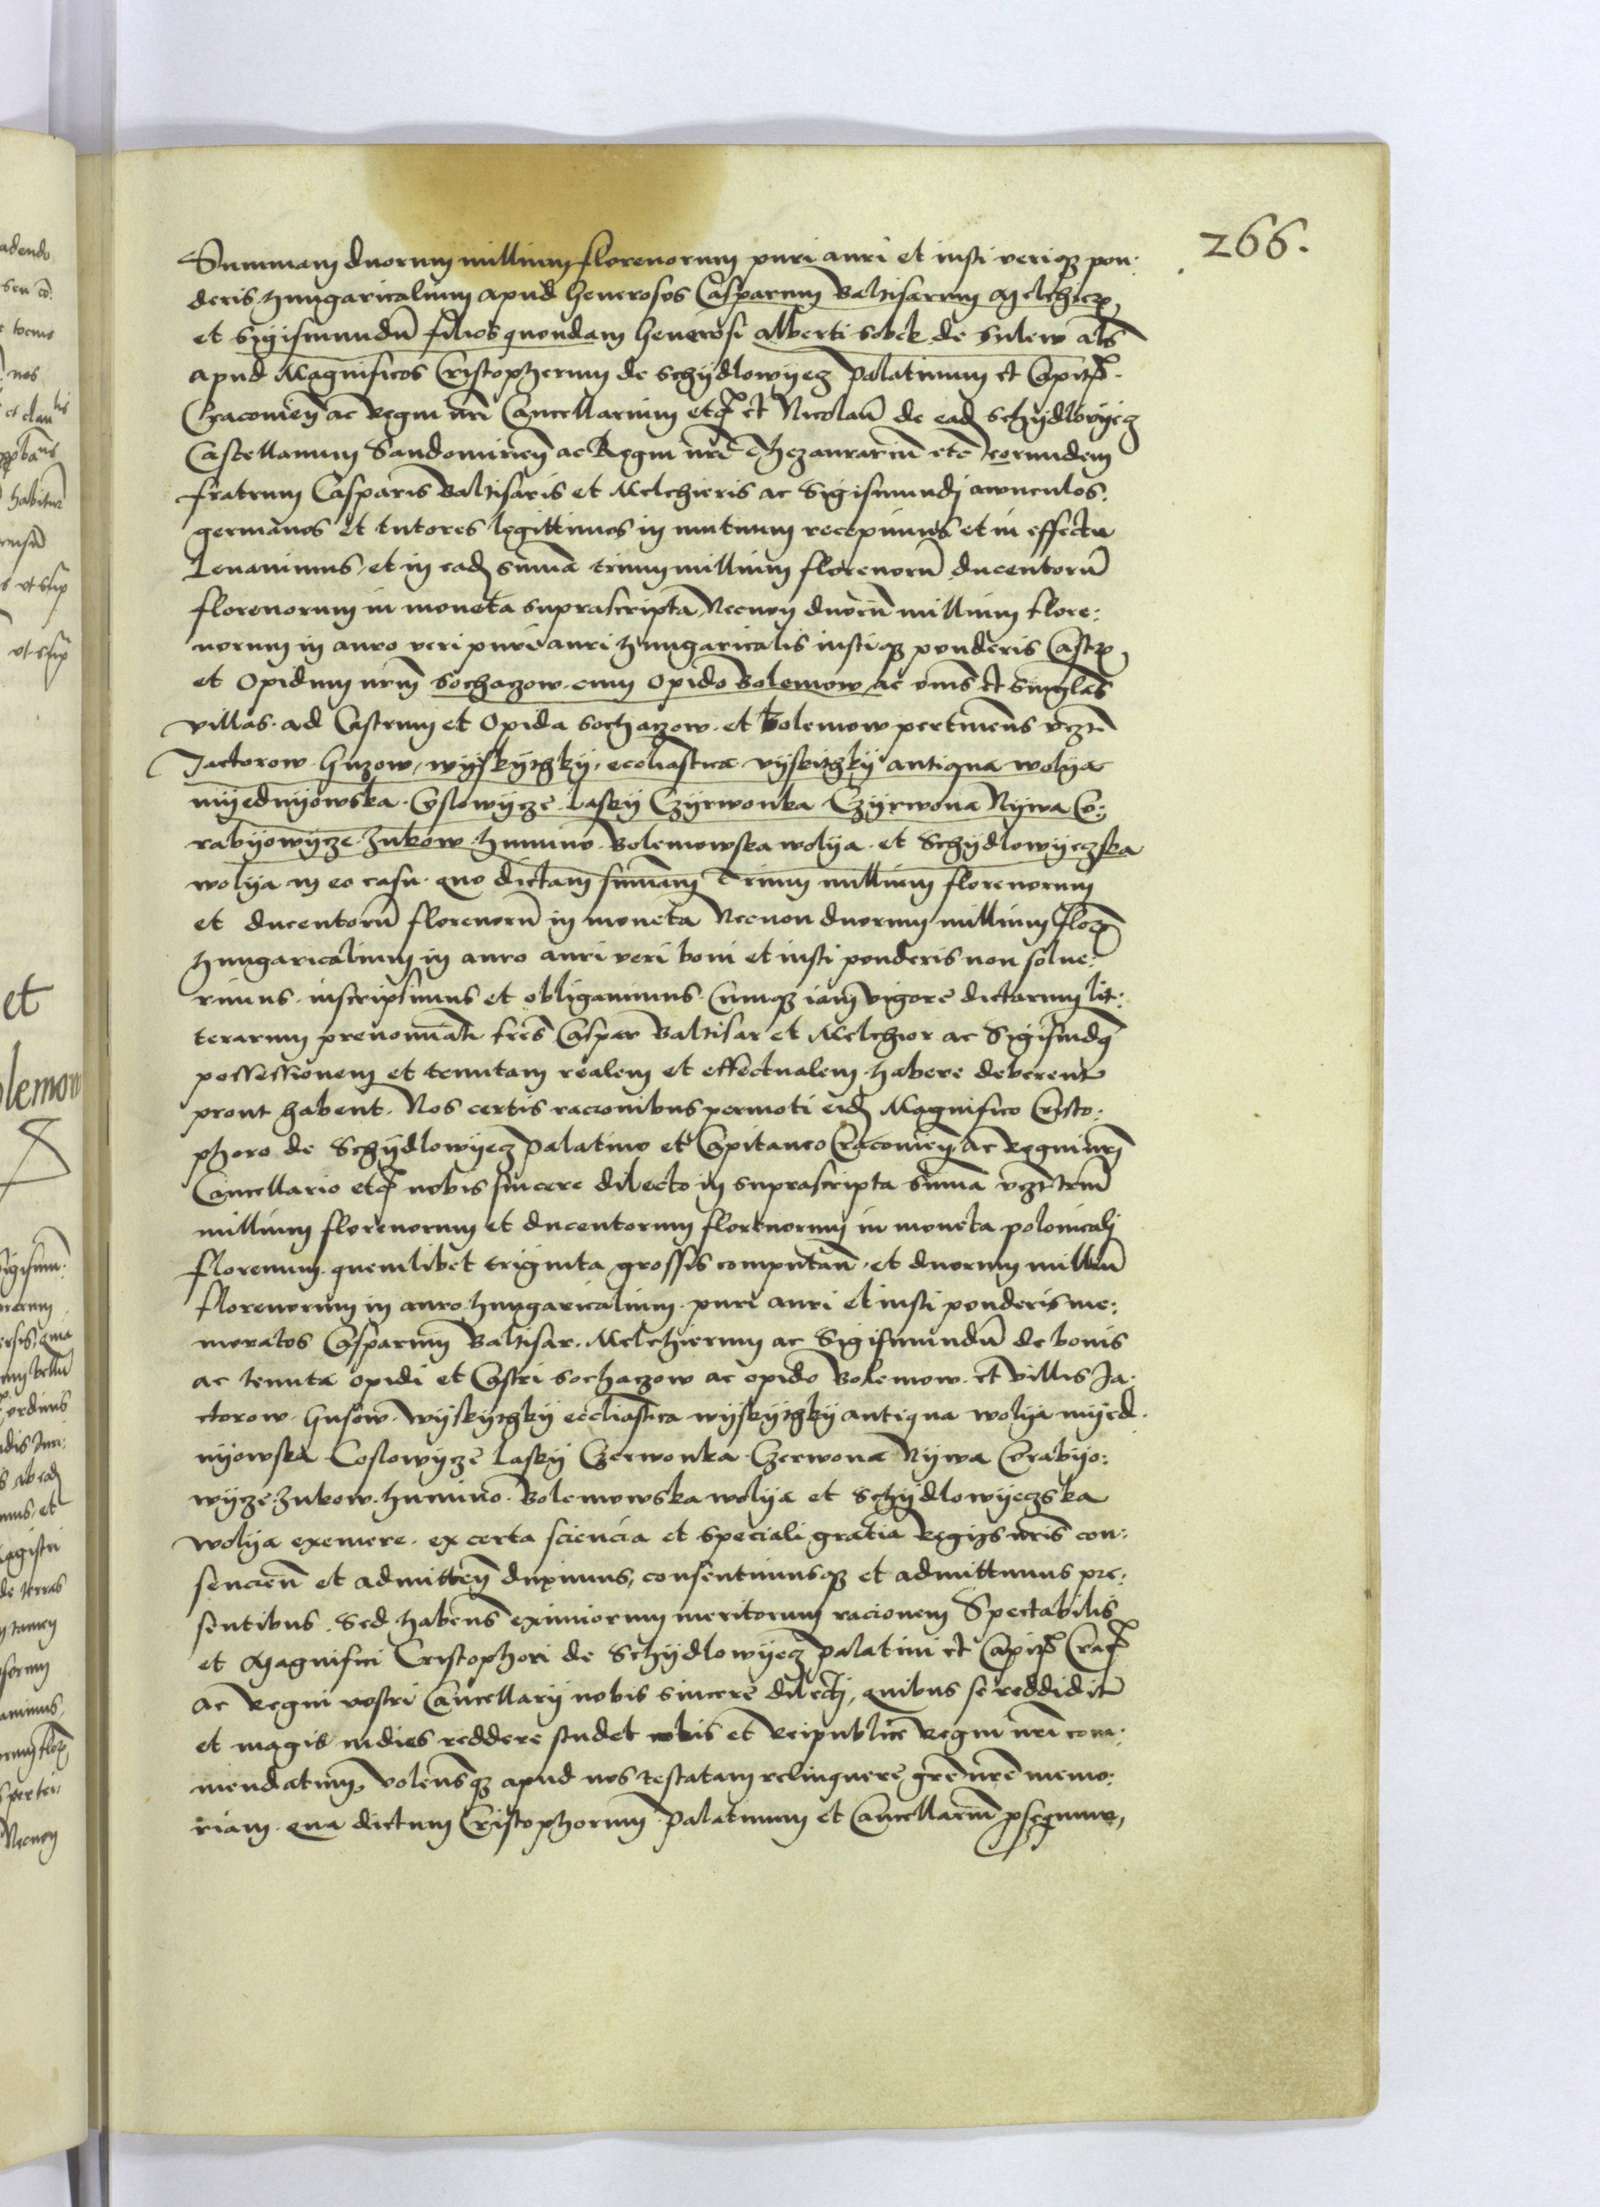 266.
Summam duorum millium florenorum puri auri et iusti veriqz pon:
deris hungaricalium apud Generosos Casparum Baltisarum Melchior,
et Sigismundũ filios quondam Generosi Alberti Sobek de Sulew als
apud Magnificos Cristopherum de Schydlowyecz Palatinum et Capit.
Cracovieñ ac Regni nri Cancellarium etc et Nicolaũ de ead Schydlovyecz
Castellanum Sandomirieñ ac Regni nri Thezaurariũ etc eorundem
fratrum Casparis Baltisaris et Melchieris ac Sigismundj avunculos.
germanos et tutores legittimos in mutuum recepimus et in effectu
Levavimus, et in eadẽ summa trium millium florenorũ ducentorũ
florenorum in moneta suprascripta Necnon duorũ millium flore:
norum in auro veri puri auri hungaricalis iustiqz ponderis Castr,
et Opidum nrm Sochaczow cum Opido Bolemow ac oms et singlas
villas. ad Castrum et Opida Sochaczow. et Bolemow pertinens vczt
Jactorow. Guzow, wyskythky, eccliastica vyskithky antiqua wolya
myednyowska. Coslowycze Lasky Czyrwonka Czyrwona Nywa O:
rabyowycze. Zukow. humino. Bolemowska wolya. et Schydlowyeczska
wolya in eo casu. quo dictam summam Trium millium florenorum
et ducentorũ florenorũ in moneta Necnon duorum millium flor
hungaricalium in auro auri veri boni et iusti ponderis non solue:
rimus. inscripsimus et obligauimus. Cumqz iam vigore dictarum lit:
terarum prenominati fres Caspar Baltisar et Melchior ac Sigismdg
possessionem et tenutam realem et effectualem habere deberent
prout habent. Nos certis racionibus permoti eidẽ Magnifico Cristo:
phoro de Schydlowyecz Palatino et Capitaneo Cracovieñ ac Regni nri
Cancellario etc nobis sincere dilecto in suprascripta summa vczt trium
millium florenorum et ducentorum florenorum in moneta polonicalj
florenum quemlibet triginta grossis computan. et duorum milliũ
florenorum in auro hungaricalium. puri auri et iusti ponderis me:
moratos Casparum Baltisar. Melchierum ac Sigismundũ de bonis
ac tenuta opidi et Castri Sochaczow ac opido Bolemow. et villis Ja:
ctorow. Gusow. wyskythky eccliastica wyskythky antiqua wolya myed.
nyowska Coslowycze Lasky Czerwonka. Czerwona Nywa Orabyo:
wycze. Zukow. humino. Bolemowska wolya et Schydlowyeczska
wolya exemere. ex certa sciencia et speciali gratia Regijs nris con:
sencien et admitten duximus, consentimusqz et admittimus pre:
sentibus. Sed habens eximiorum meritorum racionem Spectabilis
et Magnifici Cristophori de Schydlowyecz Palatini et Capit Crac
ac Regni nostri Cancellarij nobis sincere dilectj, quibus se reddidit
et magis indies reddere studet nobis et Reipublice Regni nri com:
mendatum, volensqz apud nos testatam relinquere gre nre memo:
riam. qua dictum Cristophorum Palatinum et Cancellariũ psequimr,